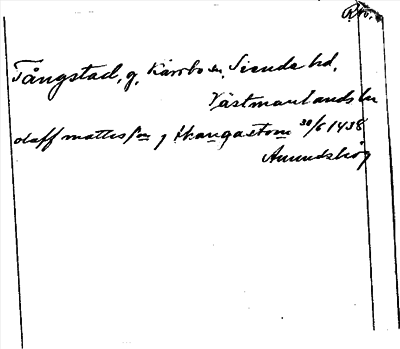 Tångstad, g, Kärrbo sn, Siende hd,
Västmanlands län
olaff mattesson j thangastom 30/6 1438
Amundshög